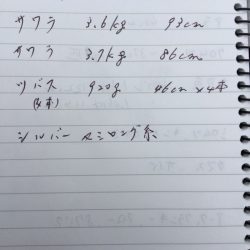 サワラ 3.6kg 93cm
サワラ 3.7kg 86cm
ツバス 920g 46cm×4本
(4本)
シルバー セミロング系